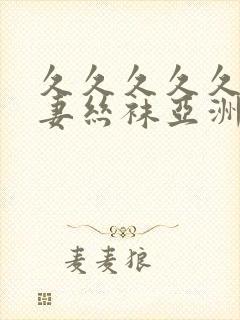 久久久久久
妻丝袜亞洲
麦麦狼